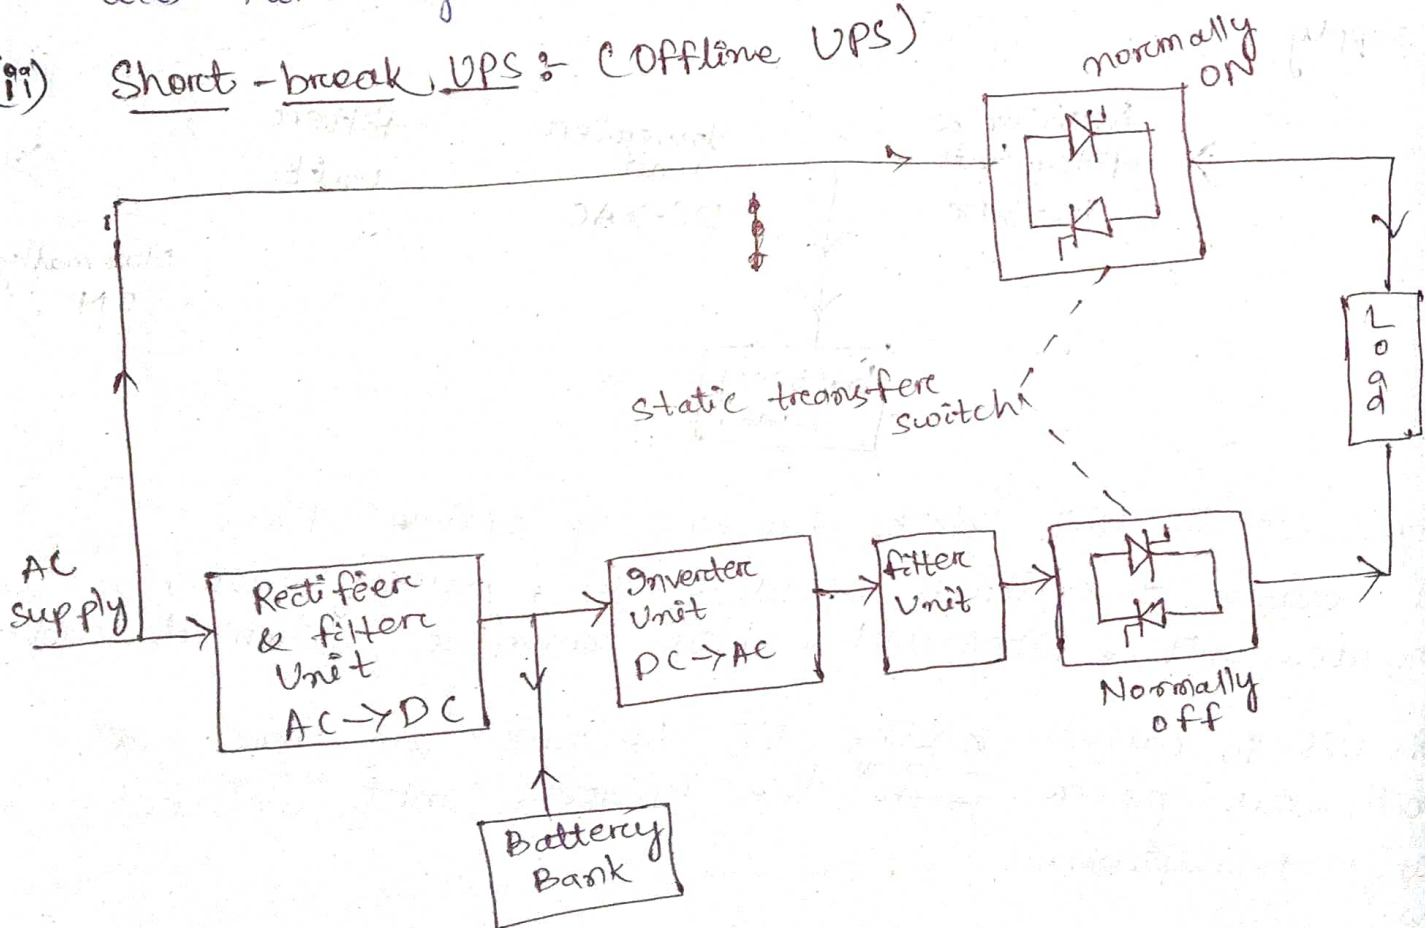 ii) Short-break UPS :- (Offline UPS)
normally
ON
Load
static transfer
switch
AC
supply
Rectifier
& filter
Unit
AC→DC
Inverter
Unit
DC→AC
filter
Unit
Normally
off
Battery
Bank